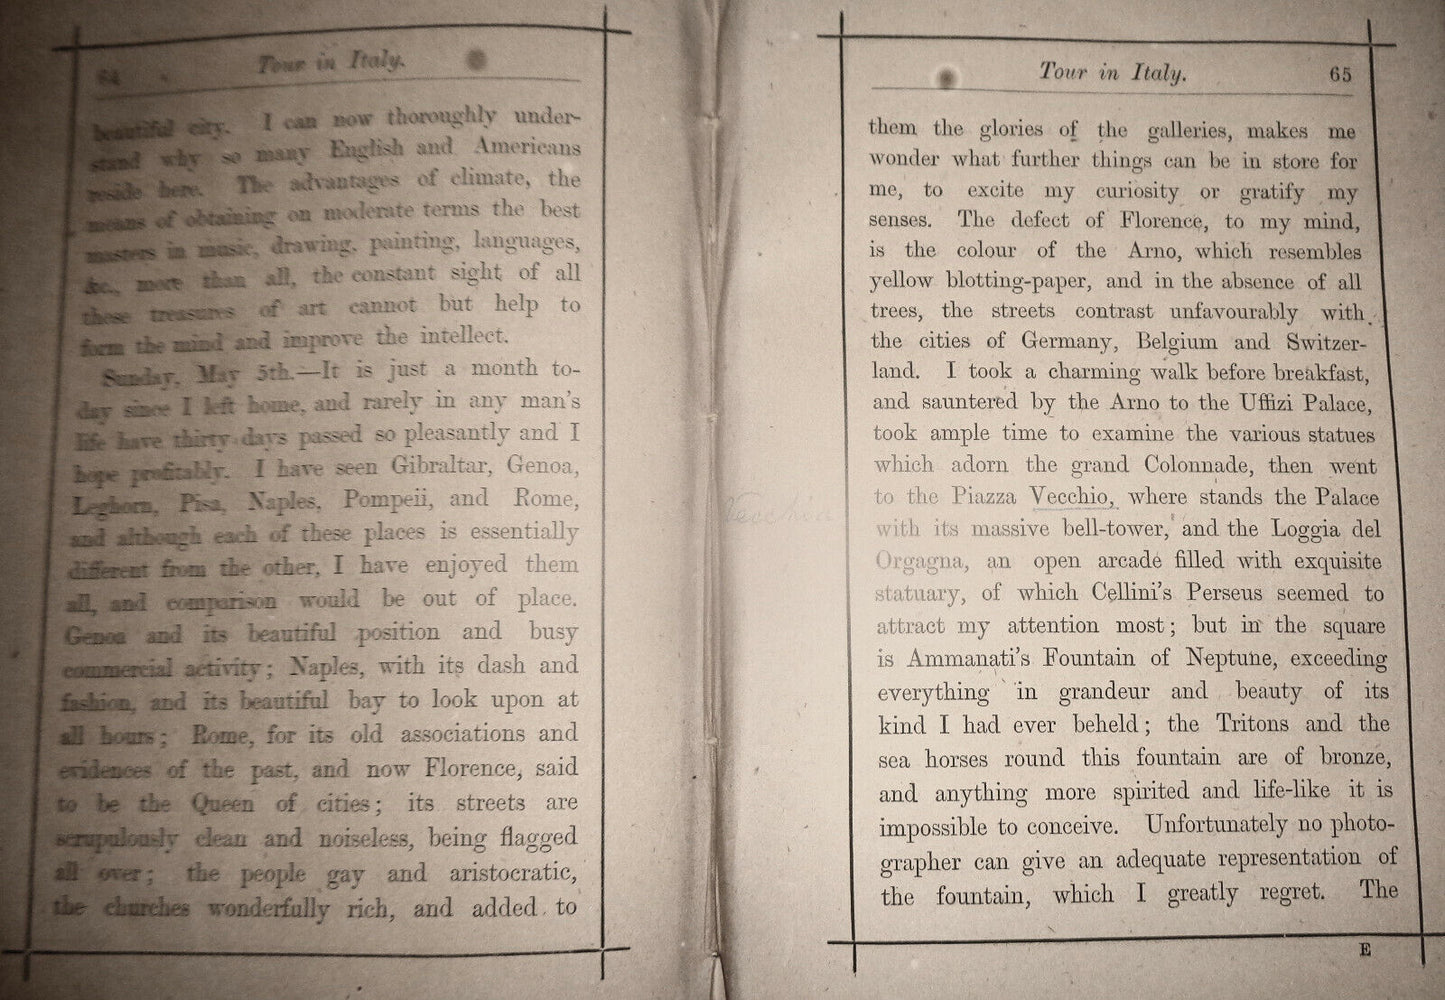 64
Tour in Italy.
beautiful city. I can now thoroughly under-
stand why so many English and Americans
reside here. The advantages of climate, the
means of obtaining on moderate terms the best
masters in music, drawing, painting, languages,
&c., more than all, the constant sight of all
these treasures of art cannot but help to
form the mind and improve the intellect.
Sunday, May 5th.—It is just a month to-
day since I left home, and rarely in any man's
life have thirty days passed so pleasantly and I
hope profitably. I have seen Gibraltar, Genoa,
Leghorn, Pisa, Naples, Pompeii, and Rome,
and although each of these places is essentially
different from the other, I have enjoyed them
all, and comparison would be out of place.
Genoa and its beautiful position and busy
commercial activity; Naples, with its dash and
fashion, and its beautiful bay to look upon at
all hours; Rome, for its old associations and
evidences of the past, and now Florence, said
to be the Queen of cities; its streets are
scrupulously clean and noiseless, being flagged
all over; the people gay and aristocratic,
the churches wonderfully rich, and added to
Vecchia
Tour in Italy.
65
them the glories of the galleries, makes me
wonder what further things can be in store for
me, to excite my curiosity or gratify my
senses. The defect of Florence, to my mind,
is the colour of the Arno, which resembles
yellow blotting-paper, and in the absence of all
trees, the streets contrast unfavourably with
the cities of Germany, Belgium and Switzer-
land. I took a charming walk before breakfast,
and sauntered by the Arno to the Uffizi Palace,
took ample time to examine the various statues
which adorn the grand Colonnade, then went
to the Piazza Vecchio, where stands the Palace
with its massive bell-tower, and the Loggia del
Orgagna, an open arcade filled with exquisite
statuary, of which Cellini's Perseus seemed to
attract my attention most; but in the square
is Ammanati's Fountain of Neptune, exceeding
everything in grandeur and beauty of its
kind I had ever beheld; the Tritons and the
sea horses round this fountain are of bronze,
and anything more spirited and life-like it is
impossible to conceive. Unfortunately no photo-
grapher can give an adequate representation of
the fountain, which I greatly regret. The
E